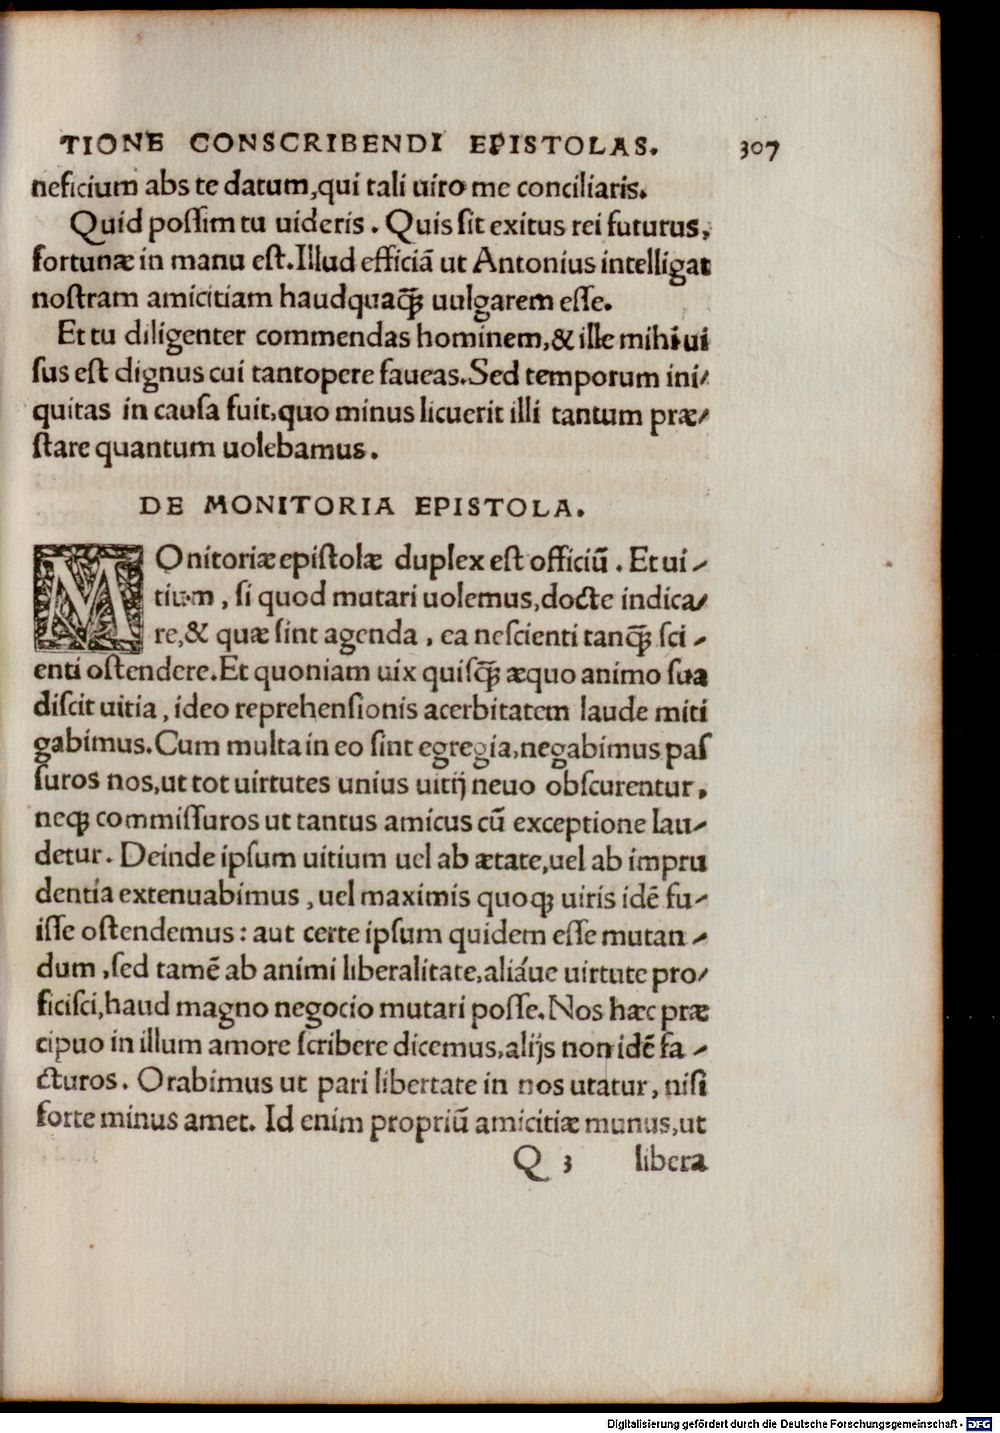 TIONE CONSCRIBENDI EPISTOLAS. 307
neficium abs te datum,qui tali uiro me conciliaris.
Quid poſſim tu uideris . Quis ſit exitus rei futurus,
fortunæ in manu eſt.Illud efficiã ut Antonius intelligat
noſtram amicitiam haudquaq̃ꝫ uulgarem eſſe.
Et tu diligenter commendas hominem,& ille mihi ui
ſus eſt dignus cui tantopere faueas.Sed temporum ini-
quitas in cauſa fuit,quo minus licuerit illi tantum præ-
ſtare quantum uolebamus.
DE MONITORIA EPISTOLA.
MOnitoriæ epiſtolæ duplex eſt officiũ . Et ui-
tium , ſi quod mutari uolemus,docte indica-
re,& quæ ſint agenda , ea neſcienti tanq̃ꝫ ſci-
enti oſtendere.Et quoniam uix quiſq̃ꝫ æquo animo ſua
diſcit uitia , ideo reprehenſionis acerbitatem laude miti
gabimus.Cum multa in eo ſint egregia,negabimus paſ
ſuros nos,ut tot uirtutes unius uitij neuo obſcurentur,
neqꝫ commiſſuros ut tantus amicus cũ exceptione lau-
detur. Deinde ipſum uitium uel ab ætate,uel ab impru
dentia extenuabimus , uel maximis quoqꝫ uiris idẽ fu-
iſſe oſtendemus : aut certe ipſum quidem eſſe mutan-
dum ,ſed tamẽ ab animi liberalitate,aliáue uirtute pro-
ficiſci,haud magno negocio mutari poſſe.Nos hæc præ
cipuo in illum amore ſcribere dicemus,alijs non idẽ fa-
cturos. Orabimus ut pari libertate in nos utatur, niſi
forte minus amet. Id enim propriũ amicitiæ munus,ut
Q 3 libera
Digitalisierung gefördert durch die Deutsche Forschungsgemeinschaft - DFG